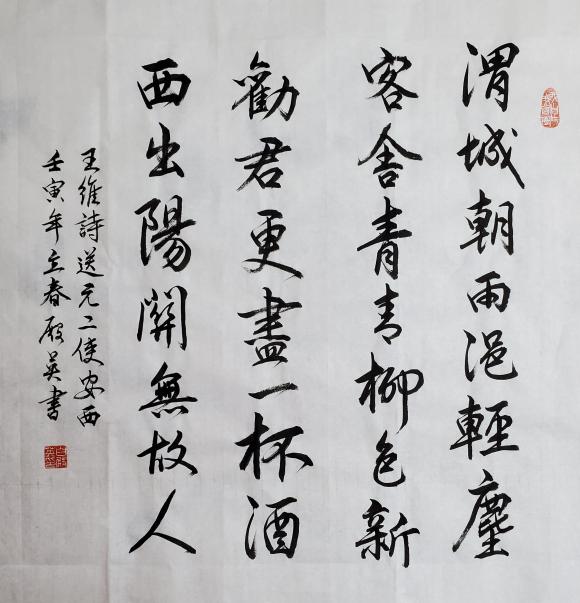 渭城朝雨浥輕塵
客舍青青柳色新
勸君更盡一杯酒
西出陽關無故人
王維詩送元二使安西
壬寅年立春殷英書